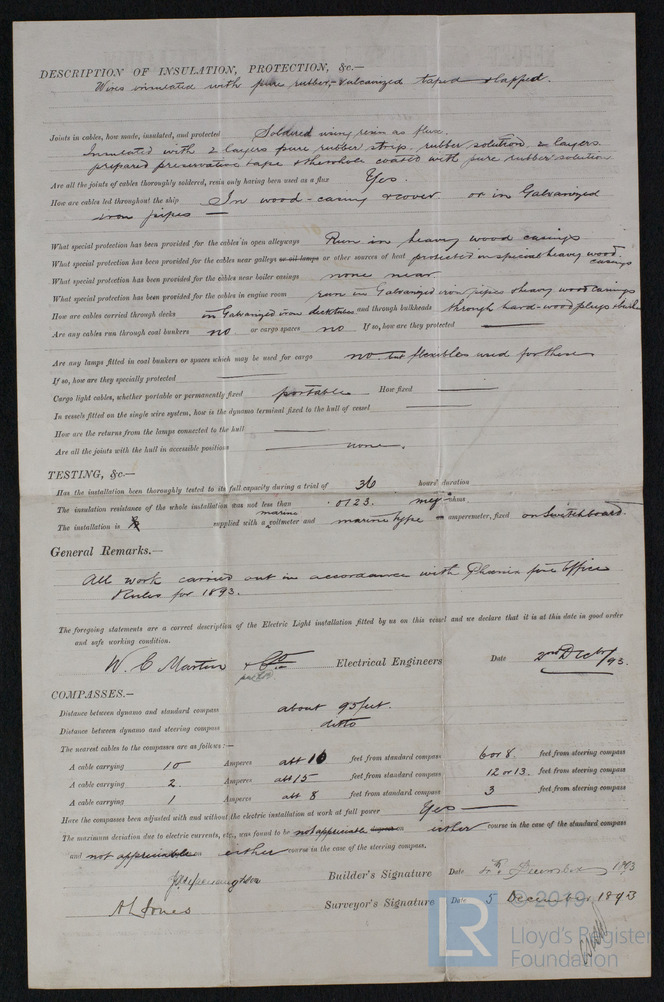 DESCRIPTION OF INSULATION, PROTECTION, &c.—
Wires insulated with pure rubber, vulcanized taped & lapped.
Joints in cables, how made, insulated, and protected Soldered using resin as flux.
Insulated with 2 layers pure rubber strip rubber solution 2 layers
prepared preservative tape & the whole coated with pure rubber solution
Are all the joints of cables thoroughly soldered, resin only having been used as a flux Yes.
How are cables led throughout the ship In wood-casing & cover or in Galvanized
iron pipes —
What special protection has been provided for the cables in open alleyways Run in heavy wood casings
What special protection has been provided for the cables near galleys or oil lamps or other sources of heat protected in special heavy wood casings
What special protection has been provided for the cables near boiler casings none near
What special protection has been provided for the cables in engine room run in Galvanized iron pipes & heavy wood casings
How are cables carried through decks in Galvanized iron deck tubes and through bulkheads through hard-wood plugs
Are any cables run through coal bunkers no or cargo spaces no If so, how are they protected —
Are any lamps fitted in coal bunkers or spaces which may be used for cargo no but flexibles used for these
If so, how are they specially protected
Cargo light cables, whether portable or permanently fixed portable How fixed —
In vessels fitted on the single wire system, how is the dynamo terminal fixed to the hull of vessel —
How are the returns from the lamps connected to the hull —
Are all the joints with the hull in accessible positions none.
TESTING, &c.—
Has the installation been thoroughly tested to its full capacity during a trial of 36 hours' duration
The insulation resistance of the whole installation was not less than .0123. meg-ohms
The installation is supplied with a marine voltmeter and marine type amperemeter, fixed on Switchboard.
General Remarks.—
All work carried out in accordance with Phœnix fire Office
Rules for 1893.
The foregoing statements are a correct description of the Electric Light installation fitted by us on this vessel and we declare that it is at this date in good order
and safe working condition.
W. C. Martin & Co. Electrical Engineers Date 2nd Decbr/93.
COMPASSES.—
Distance between dynamo and standard compass about 95 feet.
Distance between dynamo and steering compass ditto
The nearest cables to the compasses are as follows:—
A cable carrying 10 Amperes abt 10 feet from standard compass 6 or 8 feet from steering compass
A cable carrying 2 Amperes abt 15 feet from standard compass 12 or 13. feet from steering compass
A cable carrying 1 Amperes abt 8 feet from standard compass 3 feet from steering compass
Have the compasses been adjusted with and without the electric installation at work at full power Yes —
The maximum deviation due to electric currents, etc., was found to be not appreciable on either course in the case of the standard compass
and not appreciable on either course in the case of the steering compass.
Builder's Signature Date 4th 1893
A L Jones Surveyor's Signature Date 5 December 1893
LR © 2019
Lloyd's Register
Foundation